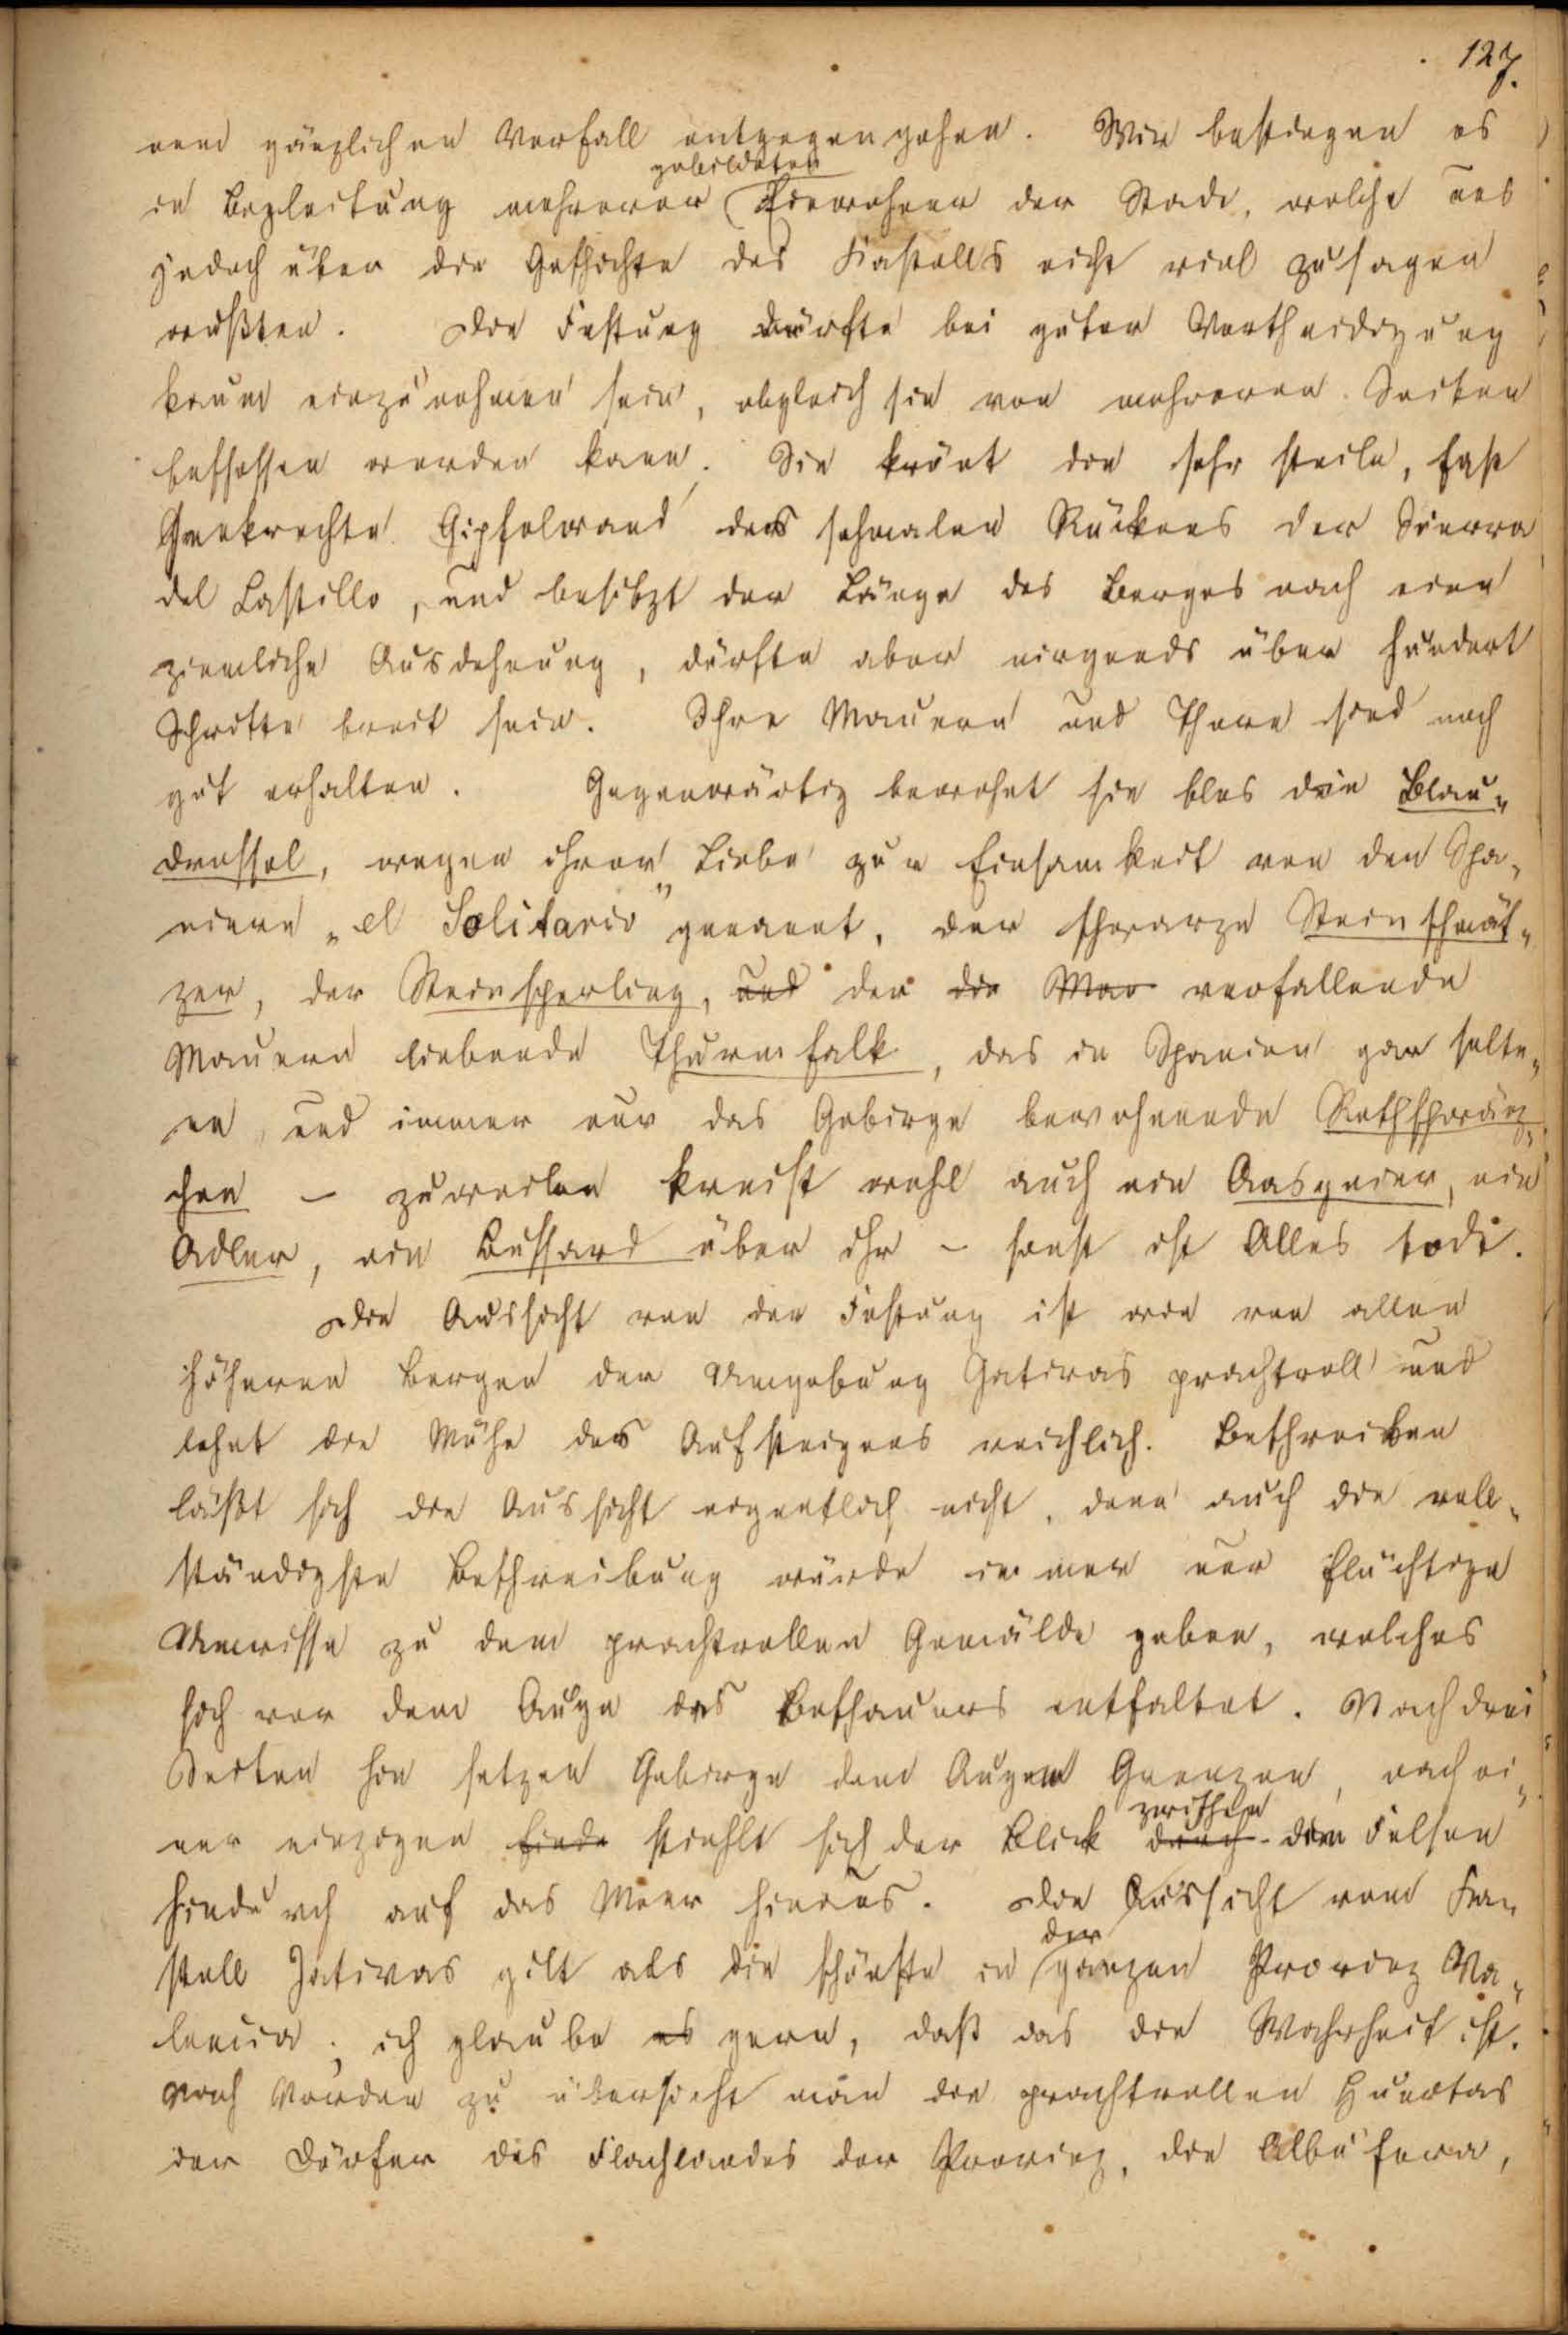 127.
nem gänzlichen Verfall entgegengehen. Wir bestiegen es
gebildeten
in Begleitung mehrerer Einwohner der Stadt, welche uns
jedoch über die Geschichte des Kastells nicht viel zu sagen
wußten. Die Festung dürfte bei guter Vertheidigung
kaum einzunehmen sein, obgleich sie von mehreren Seiten
beschossen werden kann. Sie krönt die sehr steile, fast
senkrechte Gipfelwand des schmalen Rückens der Sierra
del Castillo, und besitzt der Länge des Berges nach eine
ziemliche Ausdehnung, dürfte aber nirgends über hundert
Schritte breit sein. Ihre Mauern und Thore sind noch
gut erhalten. Gegenwärtig bewohnt sie blos die Blau-
drossel, wegen ihrer Liebe zur Einsamkeit von den Spa-
niern „el Solitario" genannt, der schwarze Steinschmät-
zer, der Steinsperling, und der die Mau verfallende
Mauern liebende Thurmfalk, das in Spanien gar selte-
ne, und immer nur das Gebirge bewohnende Rothschwänz-
chen – zuweilen kreist wohl auch ein Aasgeier, ein
Adler, ein Bussard über ihr – sonst ist Alles todt.
Die Aussicht von der Festung ist wie von allen
höheren Bergen der Umgebung Jativas prachtvoll und
lohnt die Mühe des Aufsteigens reichlich. Beschreiben
läßt sich die Aussicht eigentlich nicht, denn auch die voll-
ständigste Beschreibung würde immer nur flüchtige
Umrisse zu dem prachtvollen Gemälde geben, welches
sich vor dem Auge des Beschauers entfaltet. Nach drei
Seiten hin setzen Gebirge dem Auge Grenzen, nach ei-
zwischen
ner einzigen Ende stiehlt sich der Blick durch den Felsen
hindurch auf das Meer hinaus. Die Aussicht vom Ka-
der
stell Jativas gilt als die schönste in ganzen Provinz Va-
lencia; ich glaube es gern, daß das die Wahrheit ist.
Nach Norden zu übersieht man die prachtvollen Huertas
der Dörfer des Flachlandes der Provinz, die Albufera,